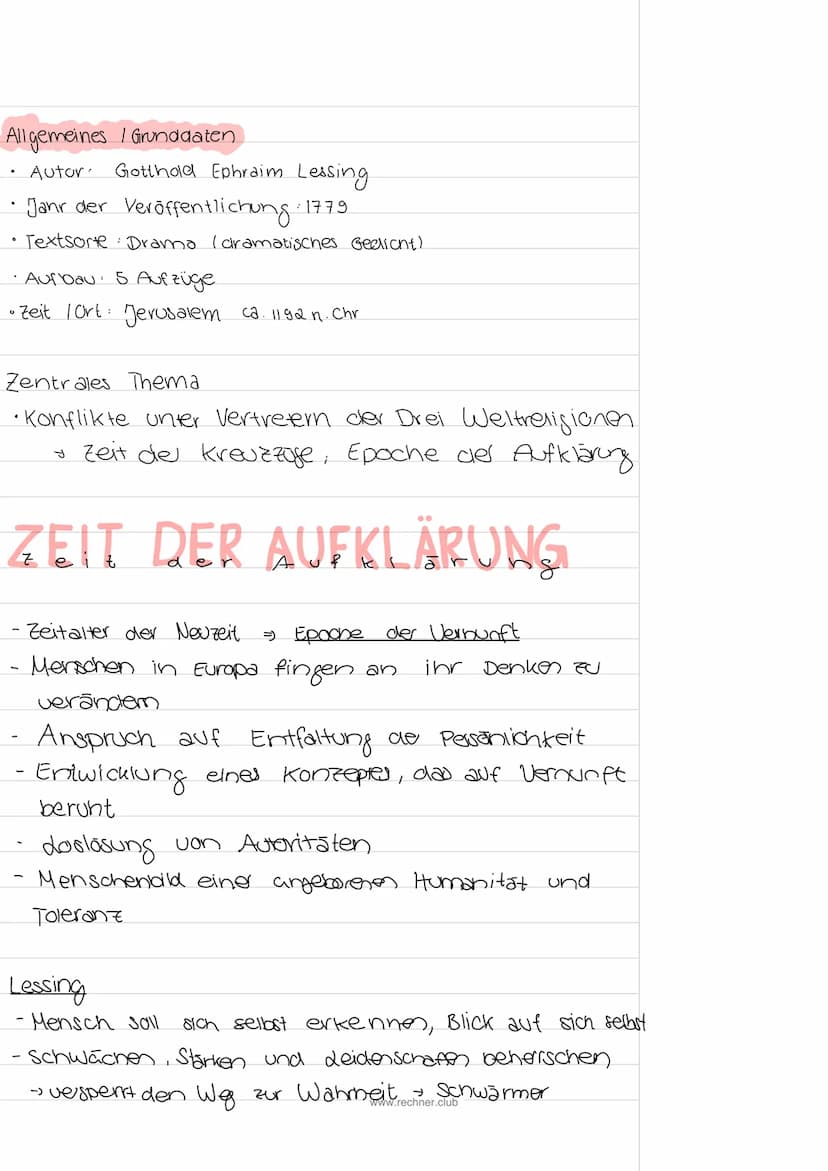 Allgemeines / Grunddaten
• Autor: Gotthold Ephraim Lessing
• Jahr der Veröffentlichung: 1779
• Textsorte: Drama (dramatisches Gedicht)
• Aufbau: 5 Aufzüge
• Zeit / Ort: Jerusalem ca. 1192 n. Chr
Zentrales Thema
• Konflikte unter Vertretern der Drei Weltreligionen
→ Zeit der Kreuzzüge, Epoche der Aufklärung
ZEIT DER AUFKLÄRUNG
Zeit der Aufklärung
- Zeitalter der Neuzeit ⇒ Epoche der Vernunft
- Menschen in Europa fingen an ihr Denken zu
verändern
- Anspruch auf Entfaltung der Persönlichkeit
- Entwicklung eines Konzeptes, das auf Vernunft
beruht
- Loslösung von Autoritäten
- Menschenbild einer angeborenen Humanität und
Toleranz
Lessing
- Mensch soll sich selbst erkennen, Blick auf sich selbst
- Schwächen, Stärken und Leidenschaften beherrschen
→ versperrt den Weg zur Wahrheit → Schwärmer
www.rechner.club